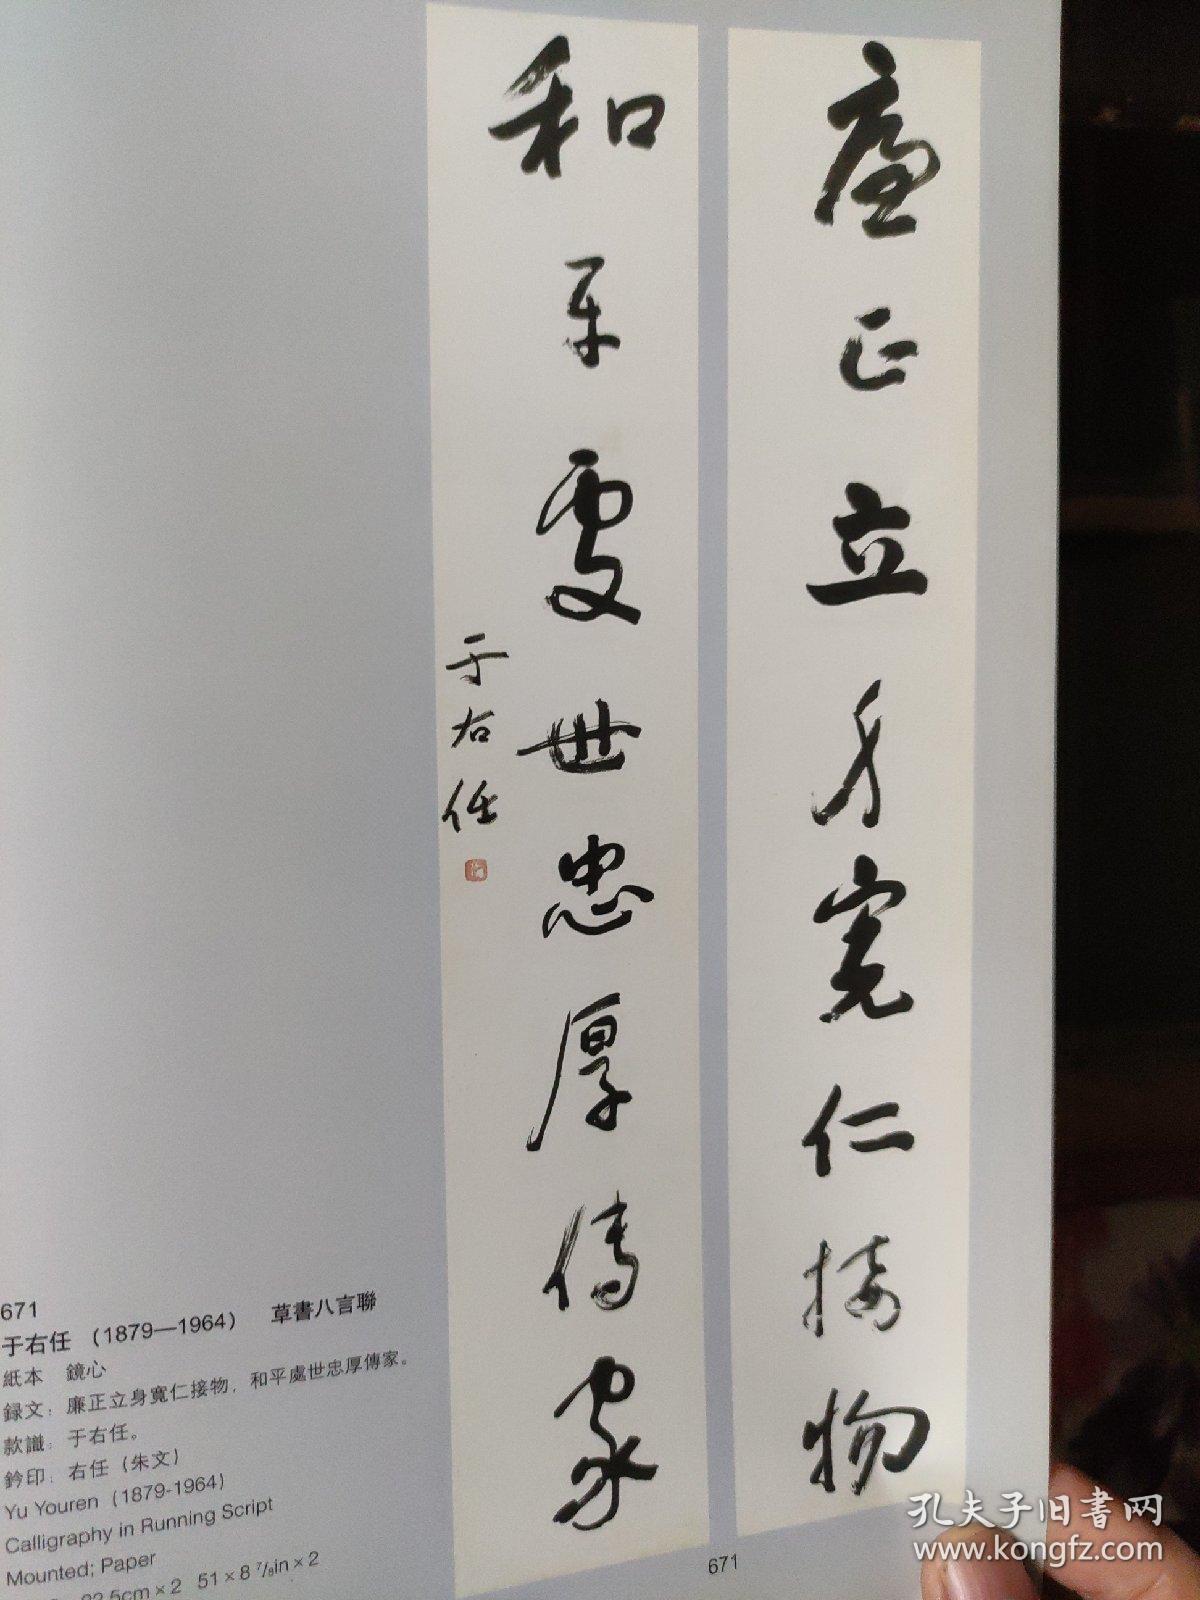 廉正立身寬仁接物
和平處世忠厚傳家
于右任
671
于右任（1879—1964） 草書八言聯
紙本 鏡心
録文：廉正立身寬仁接物，和平處世忠厚傳家。
款識：于右任。
鈐印：右任（朱文）
Yu Youren (1879-1964)
Calligraphy in Running Script
Mounted; Paper
22.5cm×2 51×8 ⅞in×2
671
孔夫子旧書网
www.kongfz.com